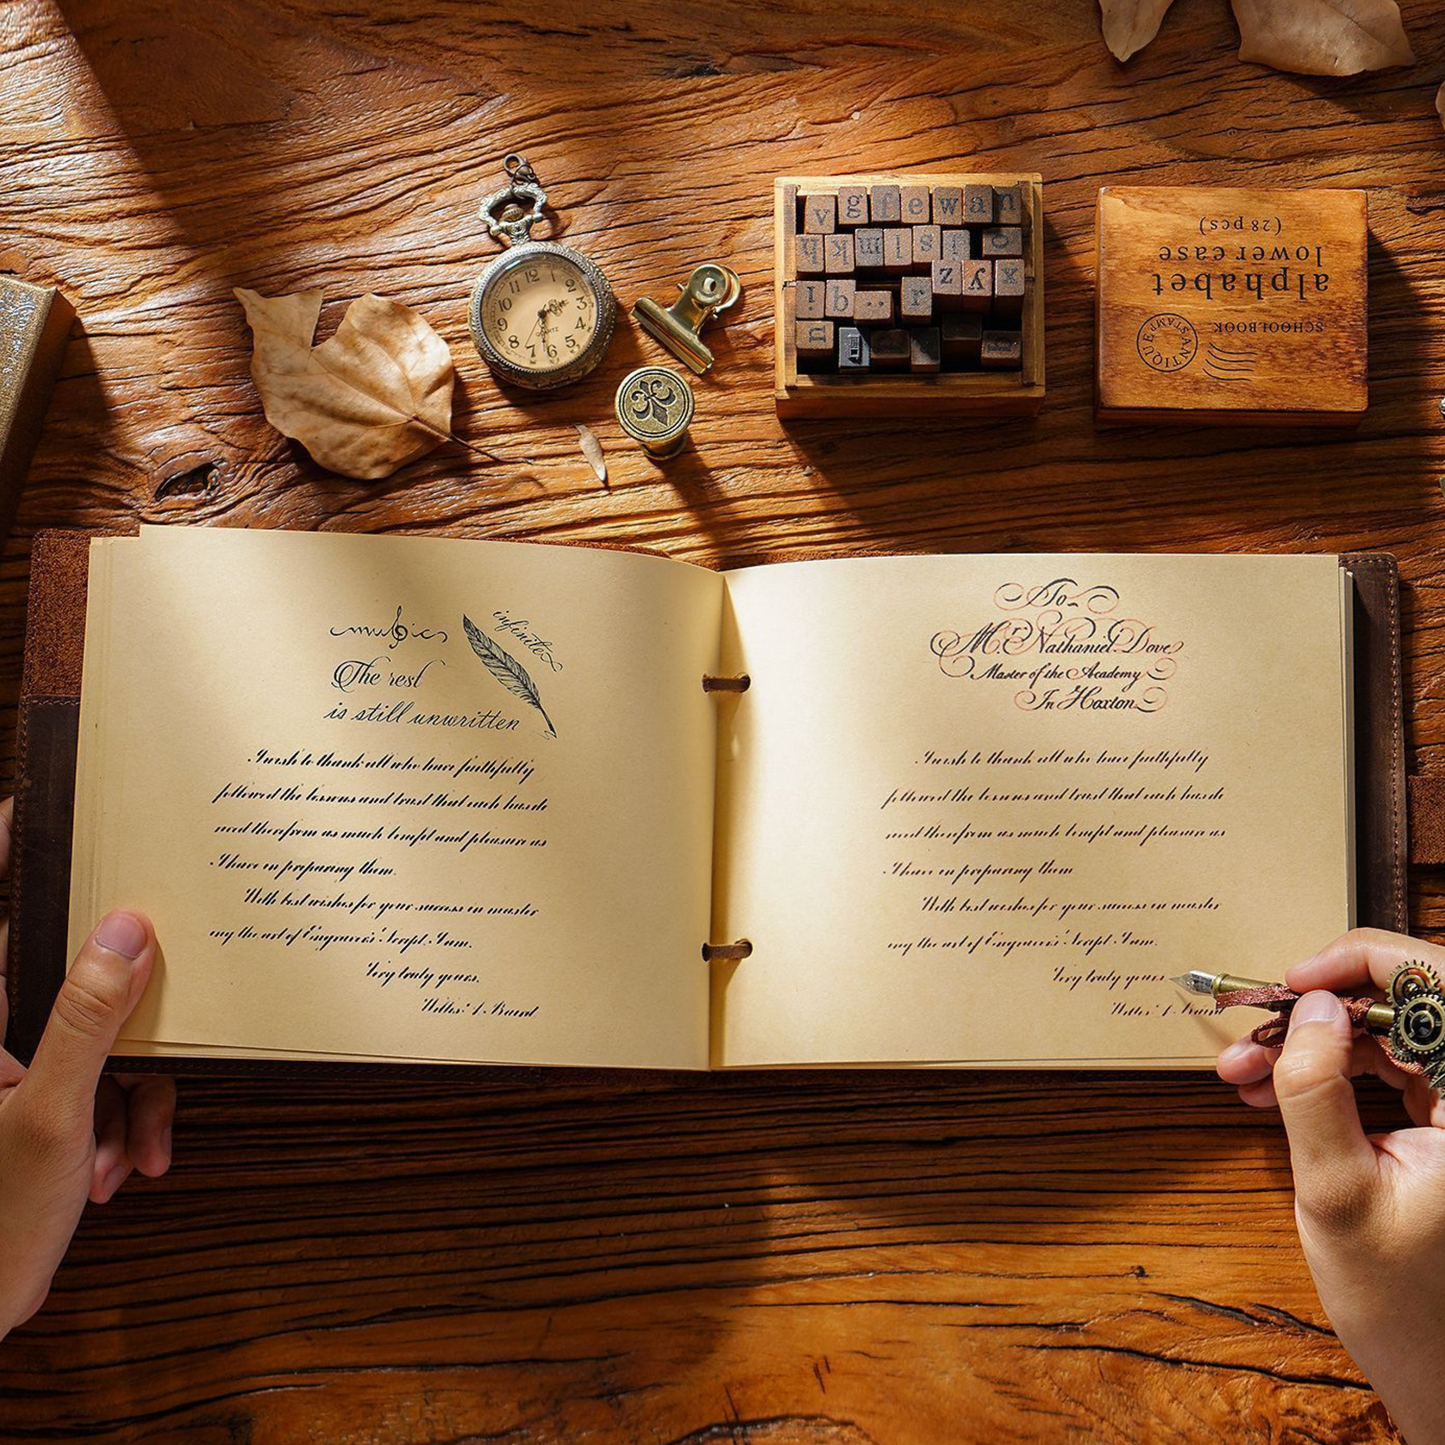 12
1
2
3
4
5
6
7
8
9
10
11
QUARTZ
v g f e w a n
h k m l s i o
z y x
! b .. r
u
SCHOOLBOOK
ANTIQUE STAMP
alphabet
lower case
(28 pcs)
music
infinite
The rest
is still unwritten
I wish to thank all who have faithfully
followed the lessons and trust that each has de
rived therefrom as much benefit and pleasure as
I have in preparing them.
With best wishes for your success in master
ing the art of Engravers' Script, I am,
Very truly yours,
To
Mr. Nathaniel Dove
Master of the Academy
In Hoxton
I wish to thank all who have faithfully
followed the lessons and trust that each has de
rived therefrom as much benefit and pleasure as
I have in preparing them
With best wishes for your success in master
ing the art of Engravers' Script, I am,
Very truly yours,